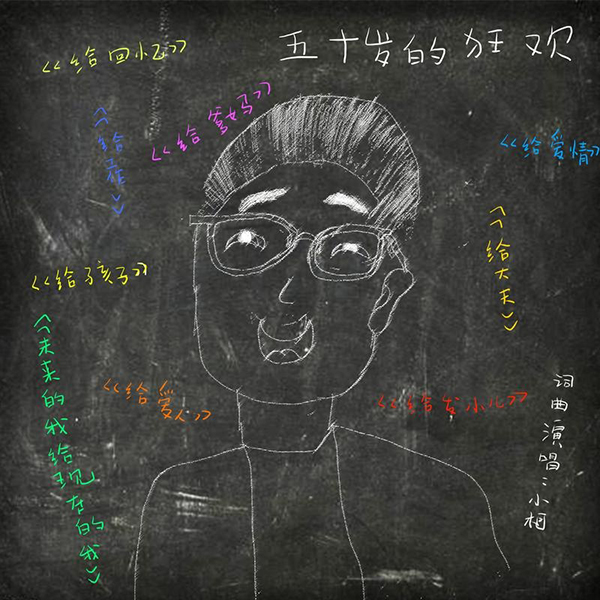 五十岁的狂欢
《给回忆》
《给爹妈》
《给爱情》
《给孩子》
《未来的我给现在的我》
《给爱人》
《给发小儿》
词曲演唱：小柯